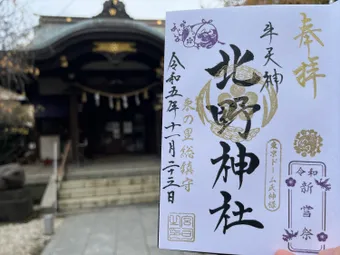 奉拝
牛天神
北野神社
東京ドーム氏神様
令和
新嘗祭
春の里総鎮守
令和五年十一月二十三日